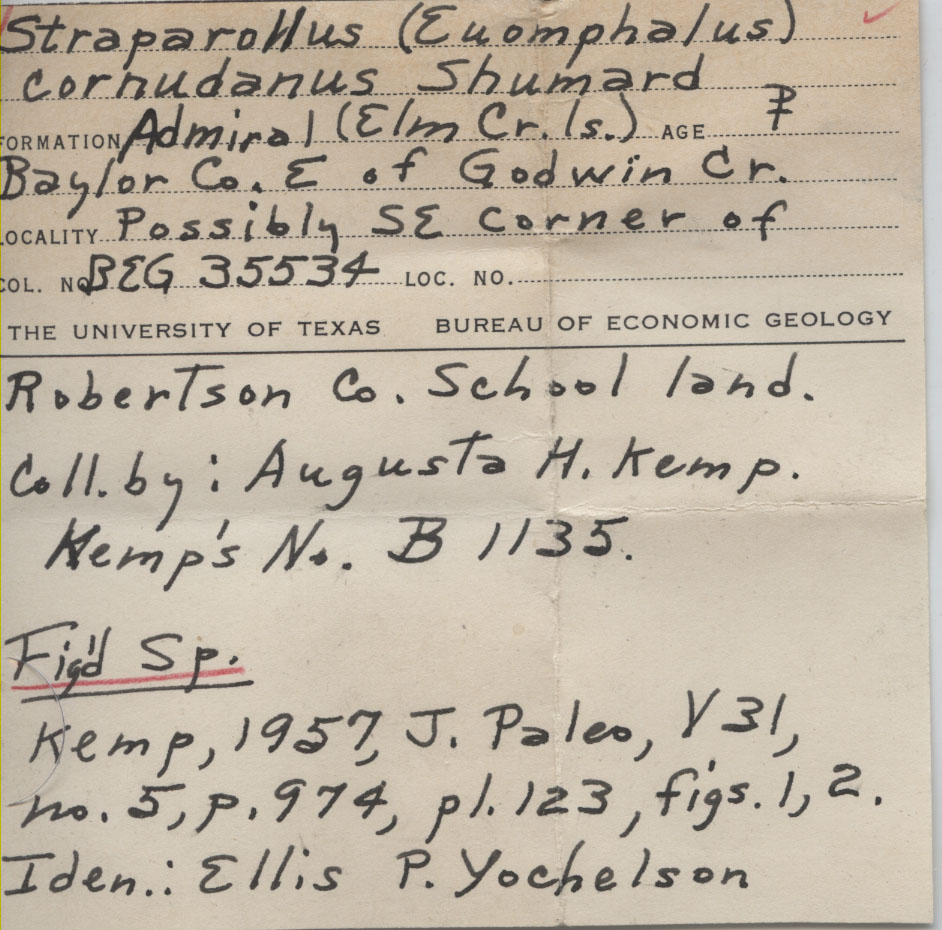 Straparollus (Euomphalus)
cornudanus Shumard
FORMATION Admiral (Elm Cr. ls.) AGE P
Baylor Co. E of Godwin Cr.
LOCALITY Possibly SE corner of
COL. NO. BEG 35534 LOC. NO.
THE UNIVERSITY OF TEXAS BUREAU OF ECONOMIC GEOLOGY
Robertson Co. School land.
Coll. by: Augusta H. Kemp.
Kemp's No. B 1135.
Fig'd Sp.
Kemp, 1957, J. Paleo, V 31,
no. 5, p. 974, pl. 123, figs. 1, 2.
Iden.: Ellis P. Yochelson